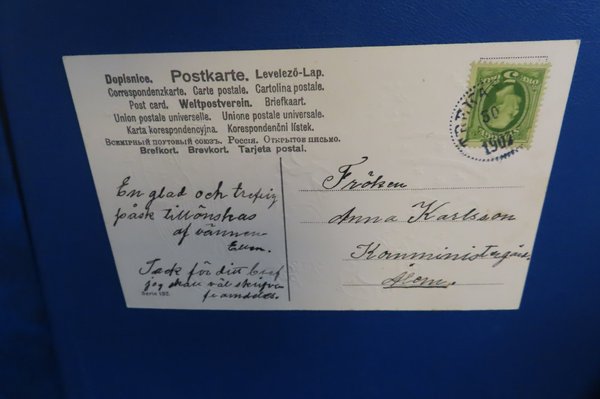 Dopisnice. Postkarte. Levelező-Lap.
Correspondenzkarte. Carte postale. Cartolina postale.
Post card. Weltpostverein. Briefkaart.
Union postale universelle. Unione postale universale.
Karta korrespondencyjna. Korespondenční lístek.
Всемірный почтовый союзъ. Россія. Открытое письмо.
Brefkort. Brevkort. Tarjeta postal.
En glad och treflig
påsk tillönskas
af vännen
Tack för ditt bref
jag skall väl skrifva
framdeles.
Serie 192.
Fröken
Anna Karlsson
Komministergård
1907